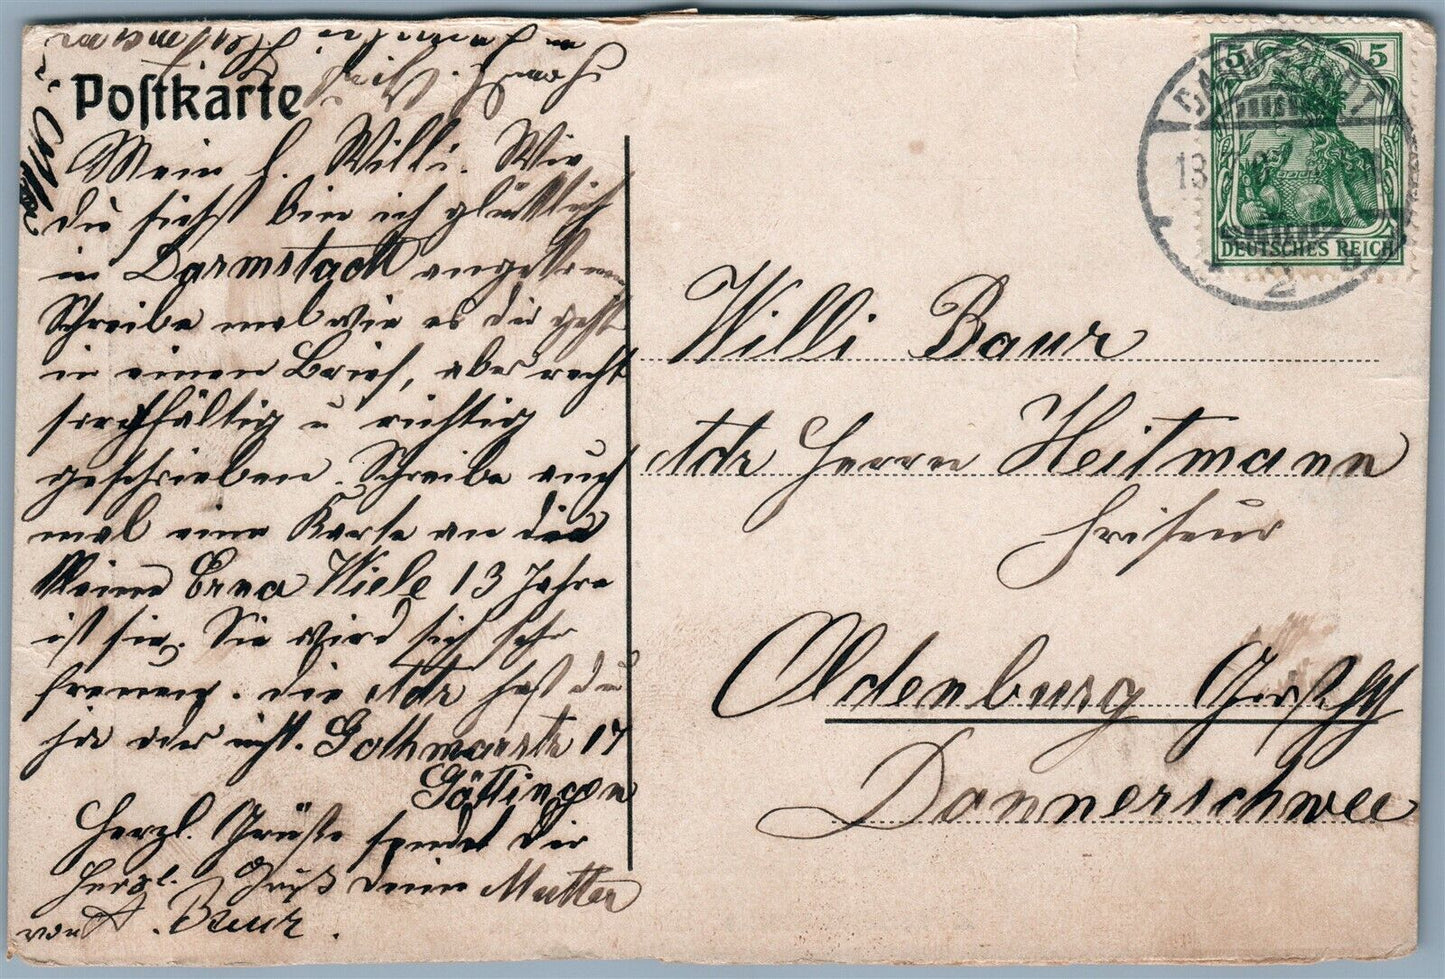 Postkarte
Mein l. Willi. Wie
du siehst bin ich glücklich
in Darmstadt angekommen
Schreibe mal wie es dir geht
in einen Brief, aber recht
sorgfältig u richtig
geschrieben. Schreibe auch
mal eine Karte an die
kleine Erna Wiele 13 Jahre
ist sie. Sie wird sich sehr
freuen. die Adr hast du
ja oder nicht. Gothmarstr 17
Göttingen
Herzl. Grüße sendet Dir
Herzl. Gruß deine Mutter
von A. Baur.
DEUTSCHES REICH
5 5
DARMSTADT
13
2
Willi Baur
Adr Herrn Heitmann
Friseur
Oldenburg
Donnerschwee